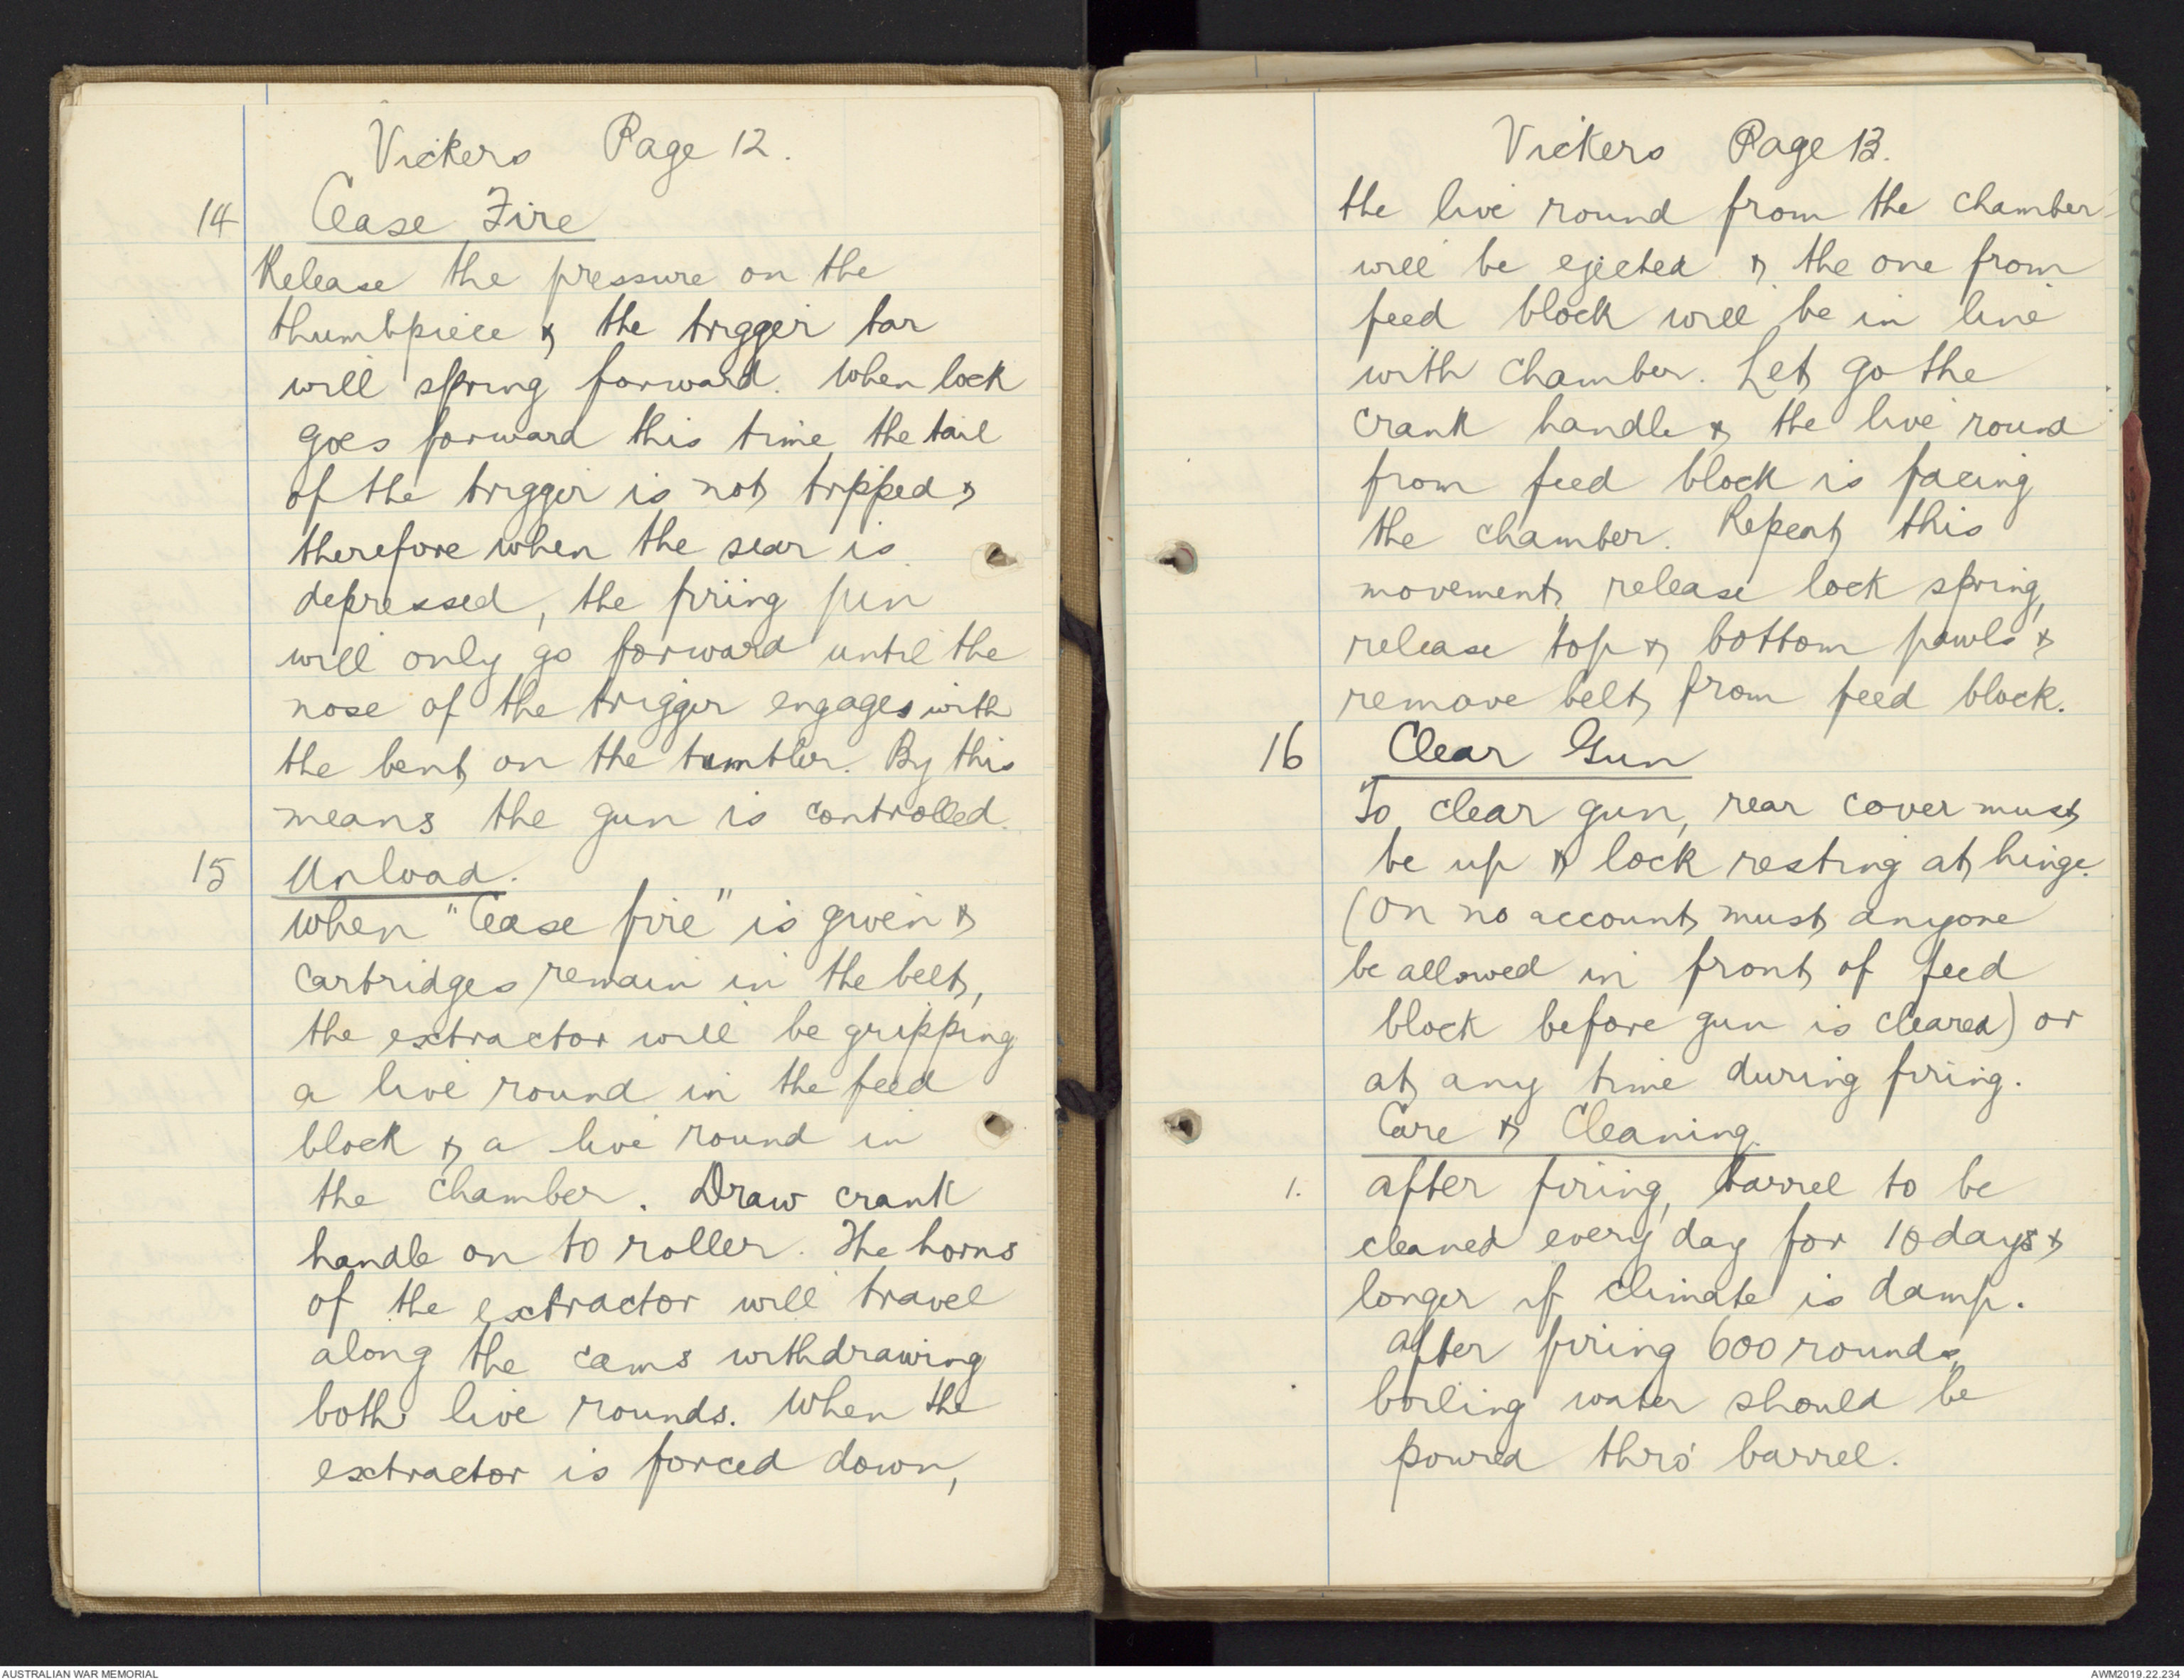 Vickers Page 12.
14 Cease Fire
Release the pressure on the
thumbpiece & the trigger bar
will spring forward. When lock
goes forward this time the tail
of the trigger is not tripped &
therefore when the sear is
depressed, the firing pin
will only go forward until the
nose of the trigger engages with
the bent on the tumbler. By this
means the gun is controlled.
15 Unload.
When "Cease fire" is given &
cartridges remain in the belt,
the extractor will be gripping
a live round in the feed
block & a live round in
the chamber. Draw crank
handle on to roller. The horns
of the extractor will travel
along the cams withdrawing
both live rounds. When the
extractor is forced down,
Vickers Page 13.
the live round from the chamber
will be ejected & the one from
feed block will be in line
with chamber. Let go the
crank handle & the live round
from feed block is facing
the chamber. Repeat this
movement, release lock spring,
release top & bottom pawls &
remove belt from feed block.
16 Clear Gun
To clear gun, rear cover must
be up & lock resting at hinge.
(On no account must anyone
be allowed in front of feed
block before gun is cleared) or
at any time during firing.
Care & Cleaning.
1. After firing, barrel to be
cleaned every day for 10 days &
longer if climate is damp.
After firing 600 rounds,
boiling water should be
poured thro' barrel.
AUSTRALIAN WAR MEMORIAL
AWM2019.22.234